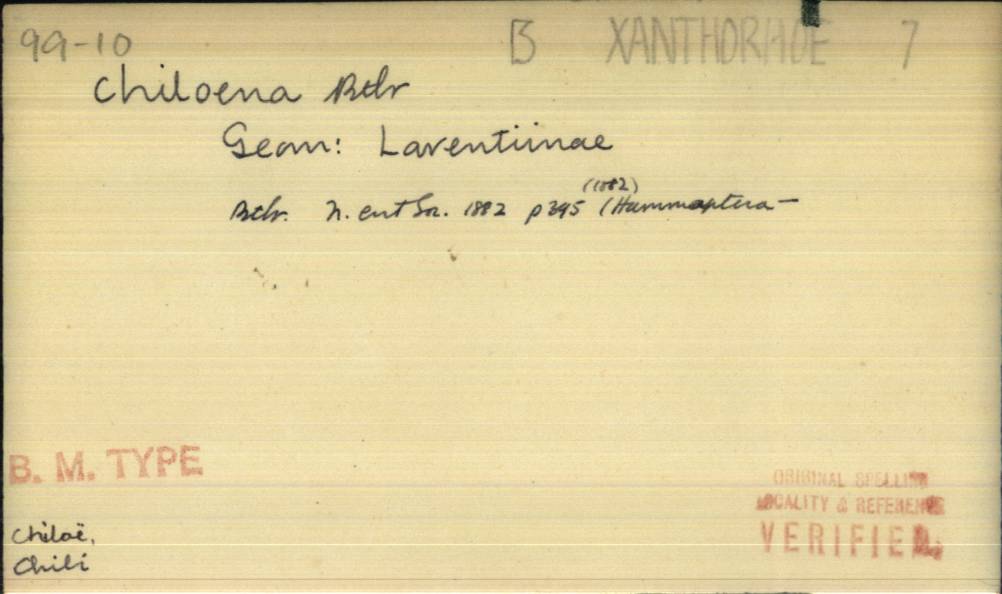 99-10 B XANTHORHOE 7
Chiloena Btlr
Geom: Larentiinae
(1882)
Btlr. N. ent Soc. 1882 p 395 (Hammaptera —
B. M. TYPE
ORIGINAL SPELLING
LOCALITY & REFERENCE
VERIFIED.
Chiloë,
Chili